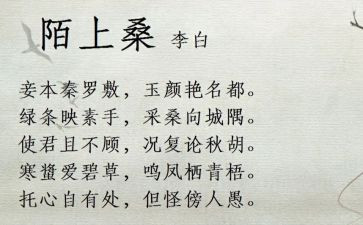 陌上桑 李白
妾本秦罗敷，玉颜艳名都。
绿条映素手，采桑向城隅。
使君且不顾，况复论秋胡。
寒螀爱碧草，鸣凤栖青梧。
托心自有处，但怪傍人愚。